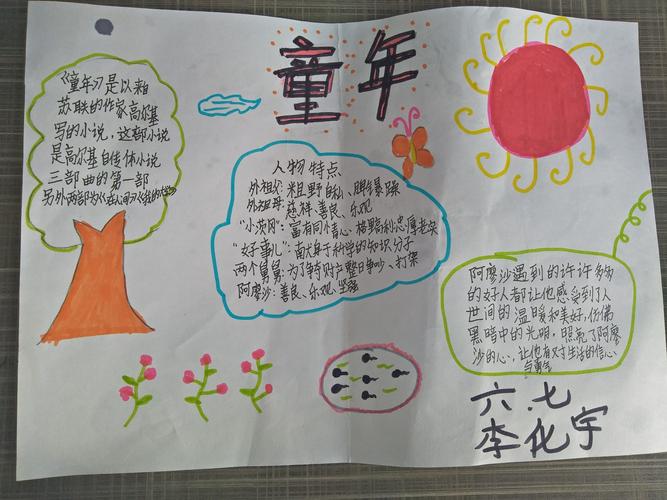 童年
《童年》是以来自
苏联的作家高尔基
写的小说，这部小说
是高尔基自传体小说
三部曲的第一部
另外两部为《在人间》《我的大学》
人物特点
外祖父：粗野自私、脾气暴躁
外祖母：慈祥善良、乐观
"小茨冈"：富有同情心、朴实忠厚老实
"好事儿"：献身于科学的知识分子
两个舅舅：为了争夺财产整日争吵、打架
阿廖沙：善良、乐观、坚强
阿廖沙遇到的许许多多
的好人都让他感受到了人
世间的温暖和美好，仿佛
黑暗中的光明，照亮了阿廖
沙的心，让他有对生活的信心、
与勇气
六.七
李化宇